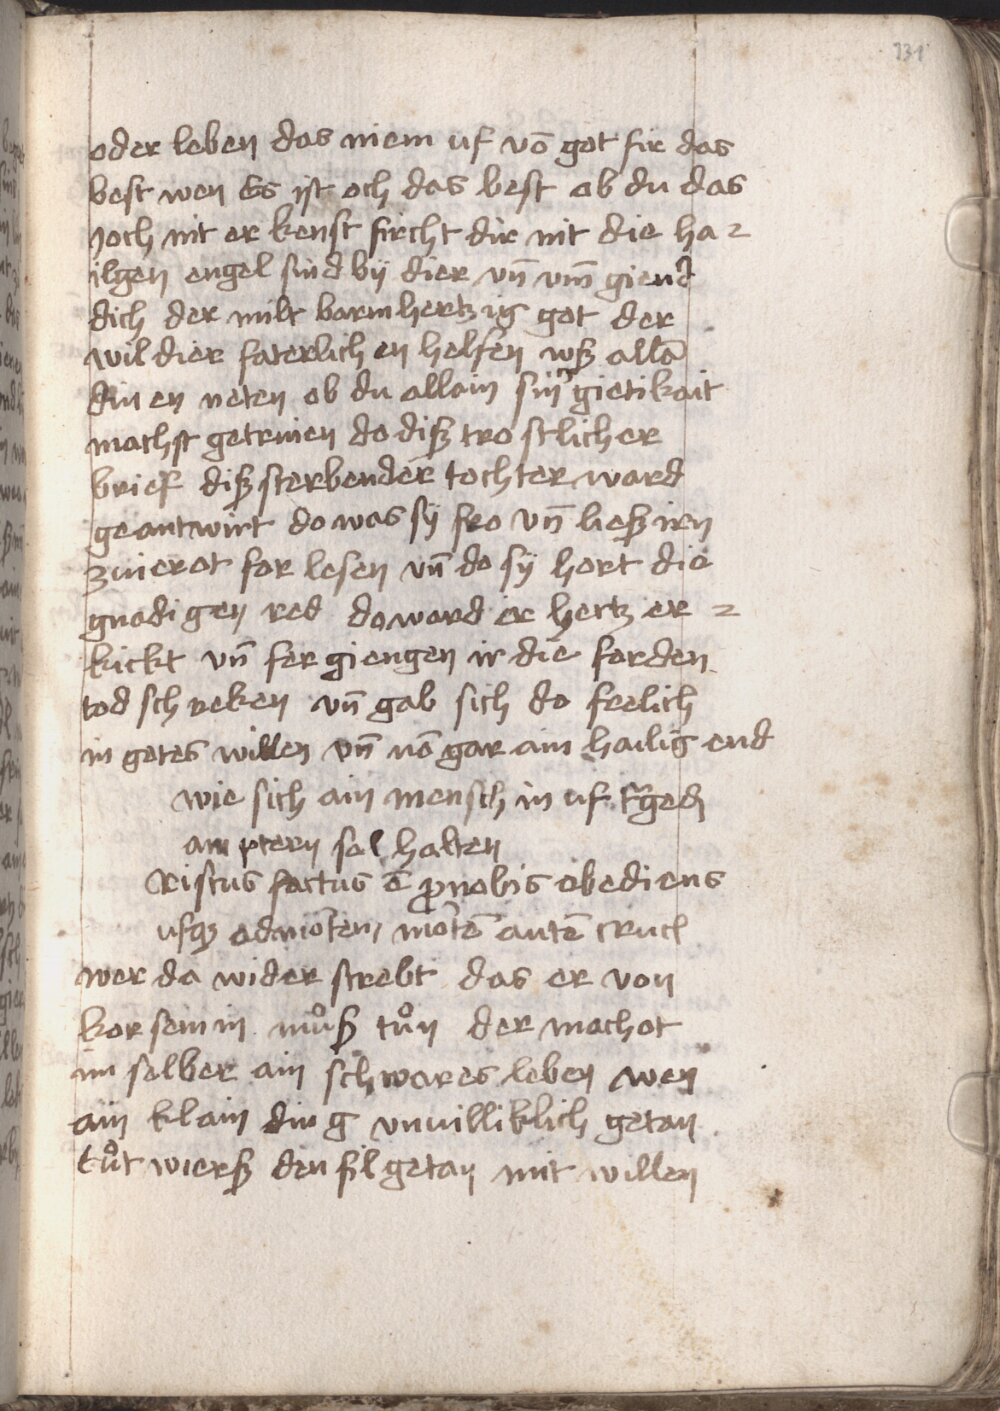 131
oder leben das niem uf vō got fir das
best wen Es ist och das best ob du das
joch nit er kenst fircht dir nit die ha⸗
ilgen engel sind bÿ dier vn̄ vm̄ giend
dich der milt barmhertzig got der
wil dier faterlich en helfen vſz allā
din en neten ob du allain sin gietikait
machst getruwen do diſz tro stlicher
brief diſz sterbender tochter ward
geantwirt do was sÿ fro vn̄ lieſz irn
zwierot for lesen vn̄ do sÿ hort die
gnadigen red do ward ir hertz er ⸗
kickt vn̄ fer giengen ir die forden
tod schreken vn̄ gab sich do frelich
in gotes willen vn̄ nō gar ain hailig end
wie sich ain mensch in uf
am ptern sol halten
Cristus factus ē pro nobis obediens
usqz ad morten, mortē autē cruci
wer da wider strebt das er von
kor sein in muͦſz tuͦn der machot
im selber ain schwares leben wen
ain klain ding vnwilliklich getan
tuͦt wierſz den fil getan mit willen